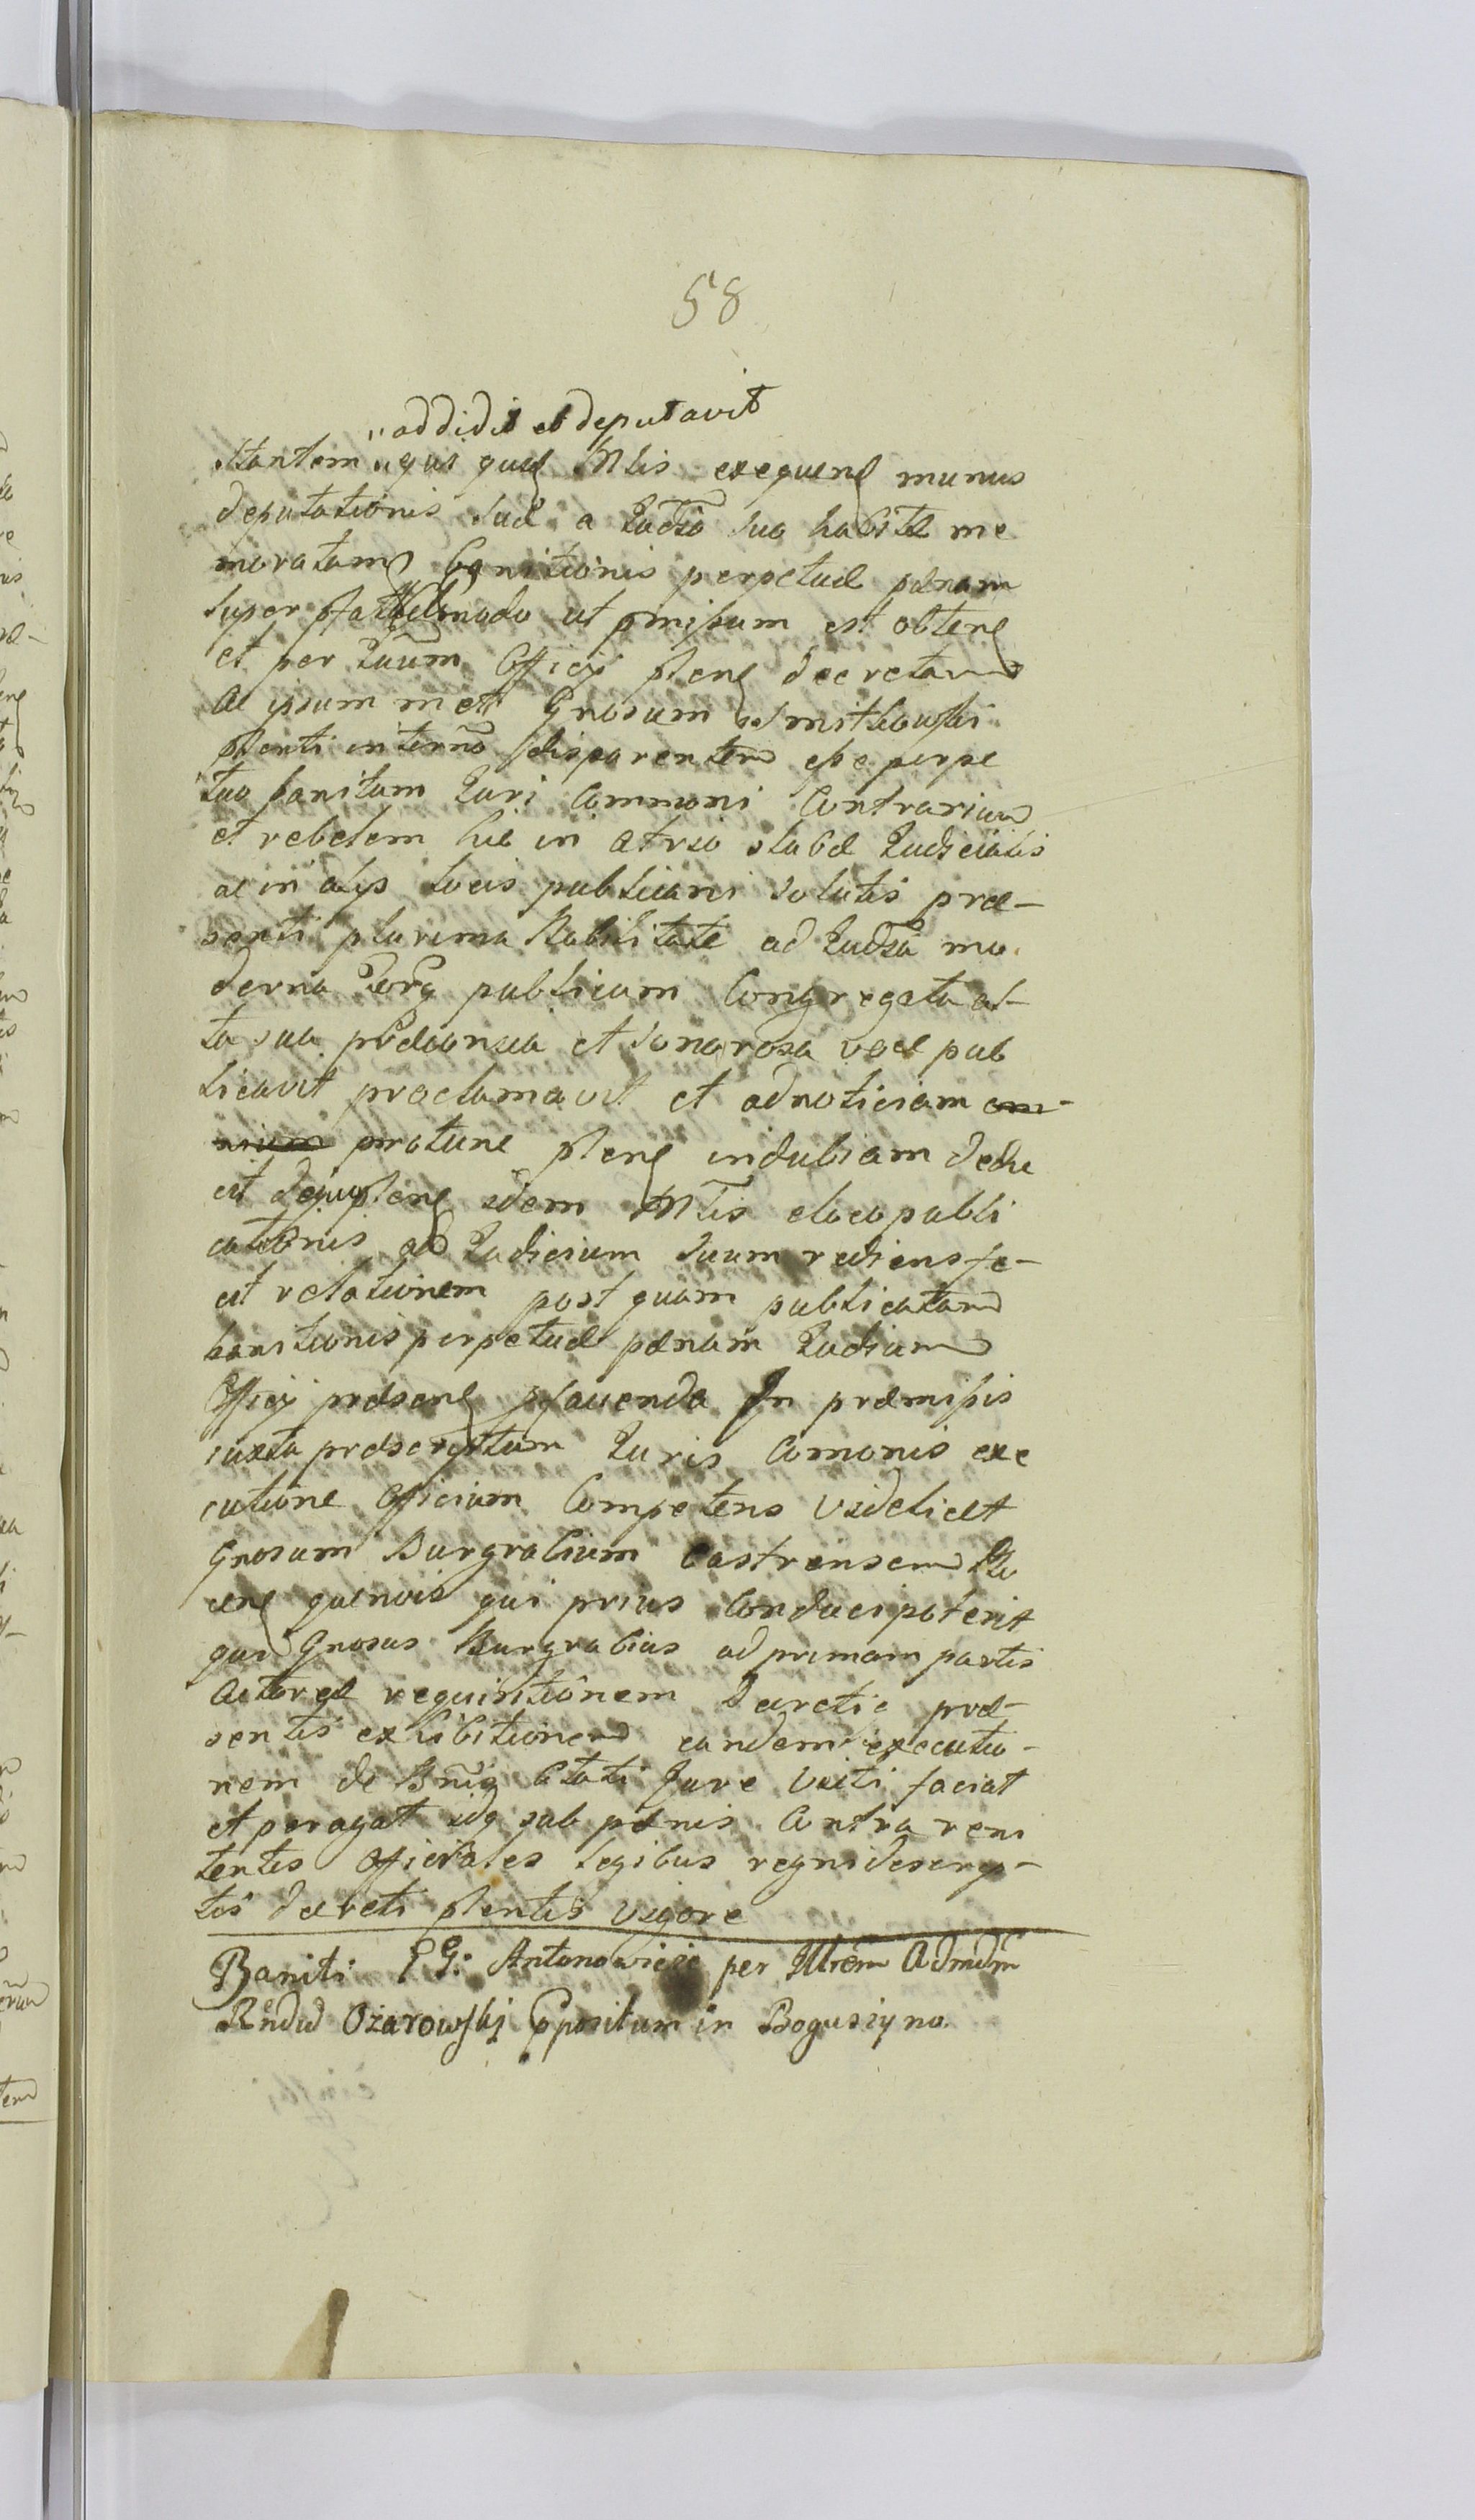 58
"addidit et deputavit
stantem "qui quid Mlis exequend munus
deputationis suæ a Iudio suo habitæ me
moratam Banitionis perpetuæ pænam
super modo ut pmissum est obtend
et per Iuum Officij pten decretam
ac ipsum met Gnosum Smitkowski
ptenti in termo disparentem esse perpe
tuo banitum Iuri Communi Contrarium
et rebelem hic in atrio stubæ Iudicialis
ac in alijs locis publicari solitis præ-
senti plurima Nobilitate ad Iudia mo
derna publicum Congregata al-
ta sua et sonorosa voce pub
licavit proclamavit et ad noticiam om-
nium protunc pten indubiam dedu
cit idem Mlis e loco publi
cationis ad Iudicium suum rediens fe-
cit relationem post quam publicatam
banitionis perpetuæ pænam Iudium
Officij præsens In præmissis
iuxta præscriptum Iuris Comonis exe
cutione Officium Competens Videlicet
Gnosum Burgrabium Castrensem
quemvis qui prius Conduci poterit
qui Gnosus Burgrabius ad primam partis
Actoreæ requisitionem Decretiq præ-
sentis exhibitionem eandem executio-
nem de Bnis Citati Jure Victi faciat
et peragat idq sub pænis Contra reni
tentes Officiales legibus regni descrip-
tis decreti ptentis vigore
Baniti GG: Antonowicze per Illrem Admdm
Rndud Ożarowskj Ppositum in Bogusiyno